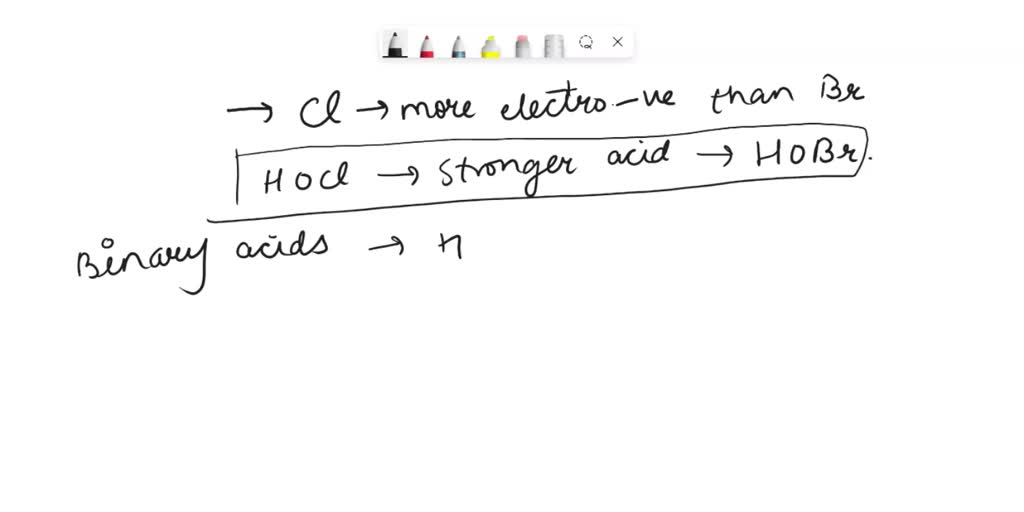 → Cl → more electro-ve than Br
HOCl → stronger acid → HOBr.
Binary acids → H